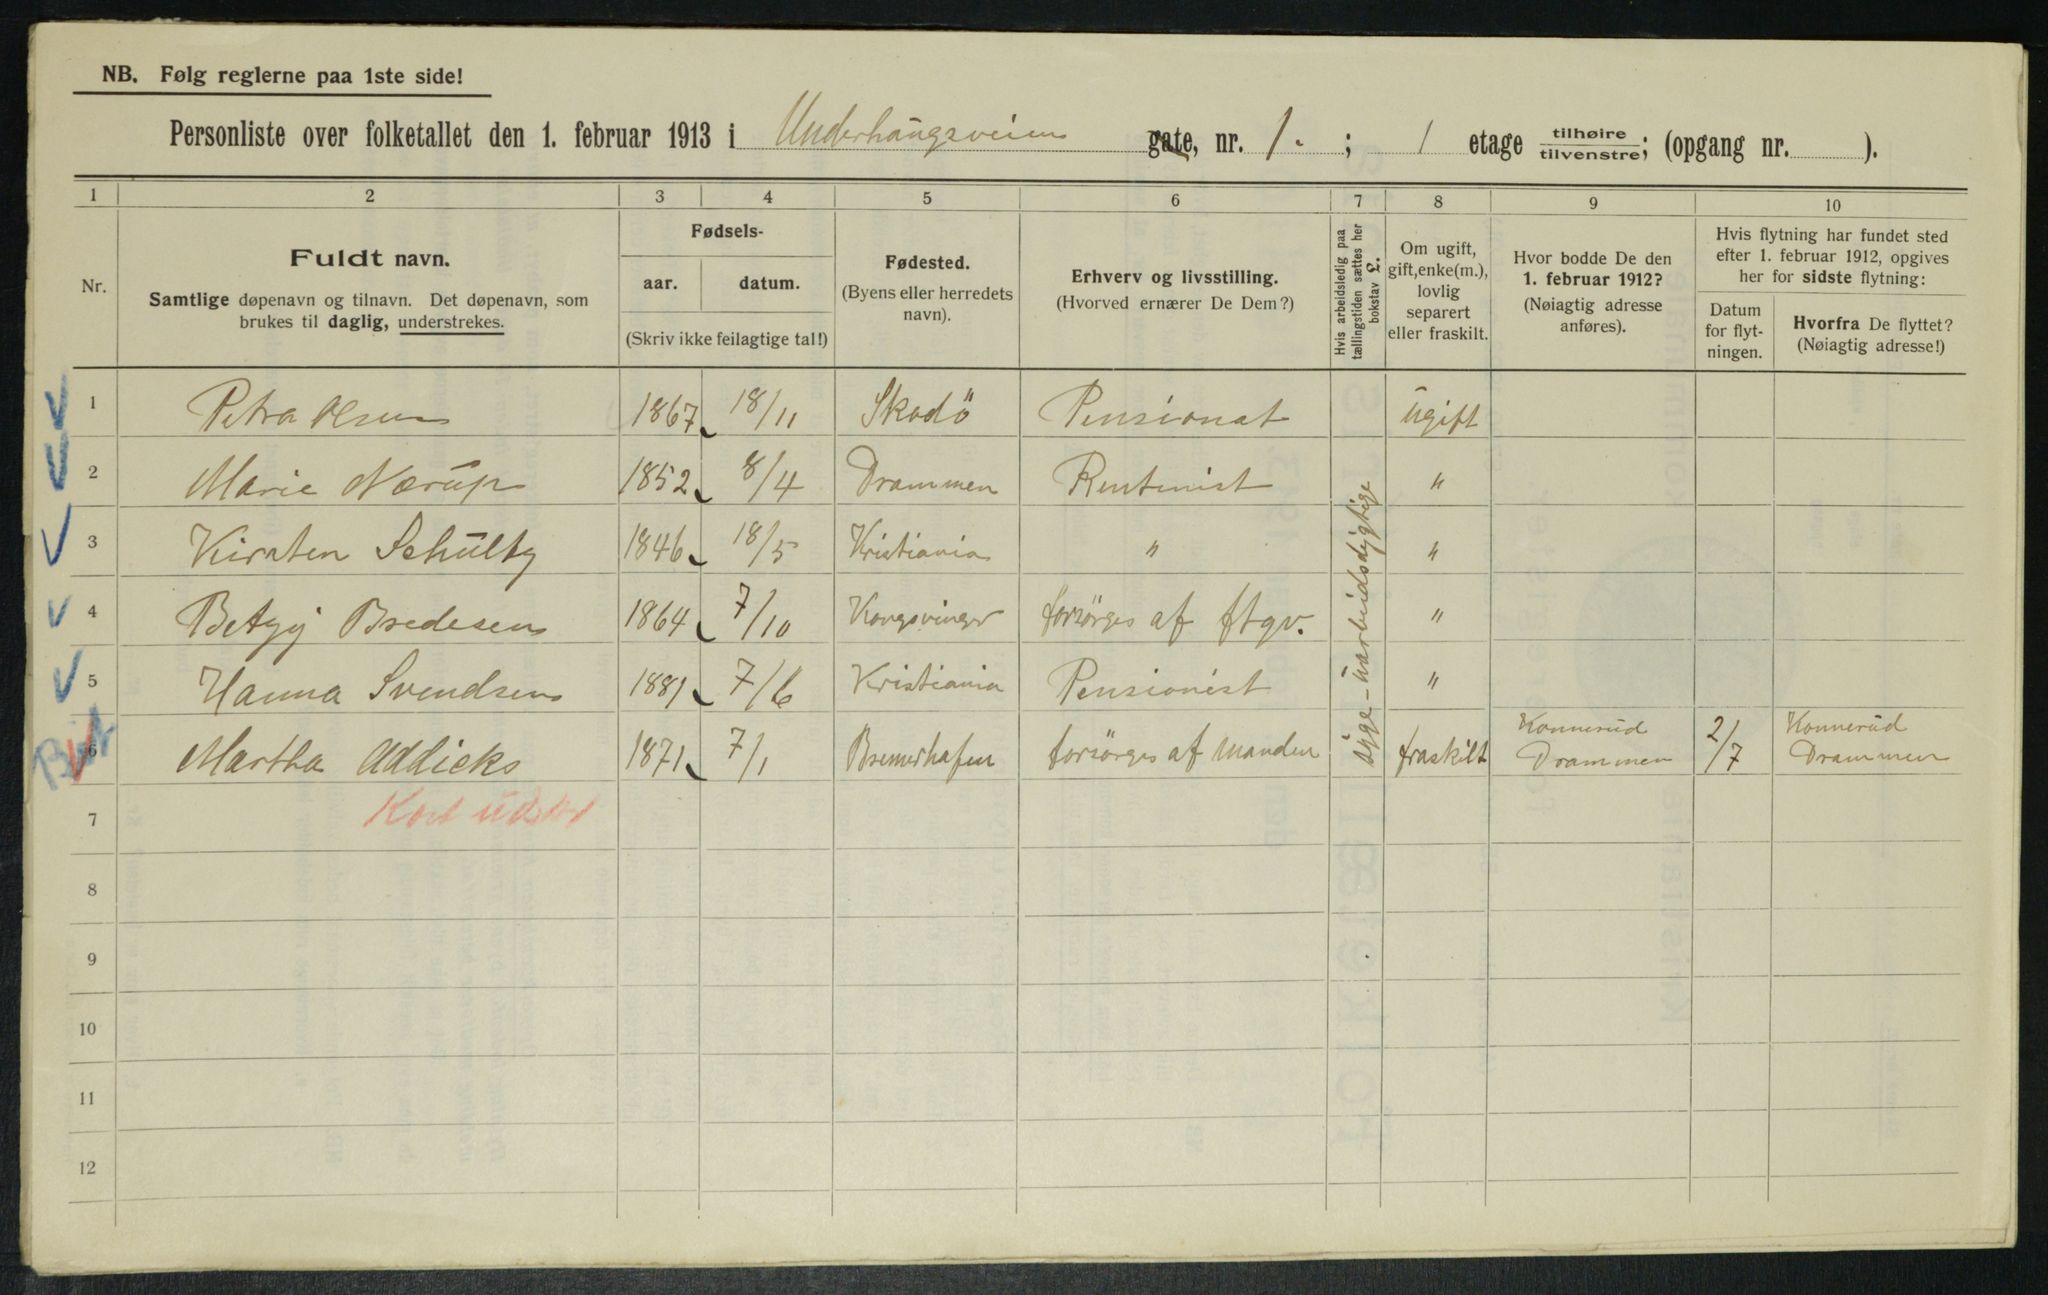 NB. Følg reglerne paa 1ste side!
Personliste over folketallet den 1. februar 1913 i Underhaugsveien gate, nr. 1. ; 1 etage tilhøire / tilvenstre; (opgang nr. ).
1 2 3 4 5 6 7 8 9 10
Nr.
Fuldt navn.
Samtlige døpenavn og tilnavn. Det døpenavn, som
brukes til daglig, understrekes.
Fødsels-
aar. datum.
(Skriv ikke feilagtige tal!)
Fødested.
(Byens eller herredets
navn).
Erhverv og livsstilling.
(Hvorved ernærer De Dem?)
Hvis arbeidsledig paa
tællingstiden sættes her
bokstav L.
Om ugift,
gift, enke(m.),
lovlig
separert
eller fraskilt.
Hvor bodde De den
1. februar 1912?
(Nøiagtig adresse
anføres).
Hvis flytning har fundet sted
efter 1. februar 1912, opgives
her for sidste flytning:
Datum
for flyt-
ningen.
Hvorfra De flyttet?
(Nøiagtig adresse!)
1 Petra Olsen 1867 18/11 Skodö Pensionat ugift
2 Marie Nærup 1852 8/4 Drammen Rentenist "
3 Kirsten Schultz 1846 18/5 Kristiania " "
4 Betzy Bredesen 1864 7/10 Kongsvinger forsörges af ftgv. "
5 Hanna Svendsen 1881 7/6 Kristiania Pensionist "
6 Martha Addicks 1871 7/1 Bremerhafen forsörges af manden fraskilt Konnerud Drammen 2/7 Konnerud Drammen
uarbeidsdygtige
7 Kort
8
9
10
11
12